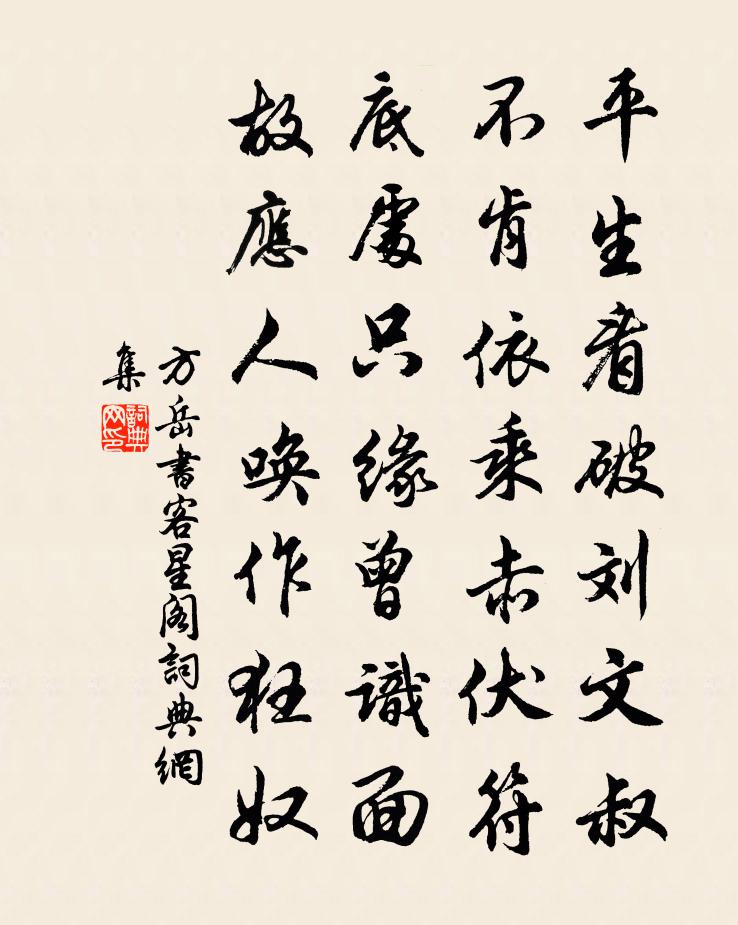 平生看破刘文叔
不肯依乘赤伏符
底處只緣曾識面
故應人喚作狂奴
方岳書客星阁詞典網
集
詞典
网印